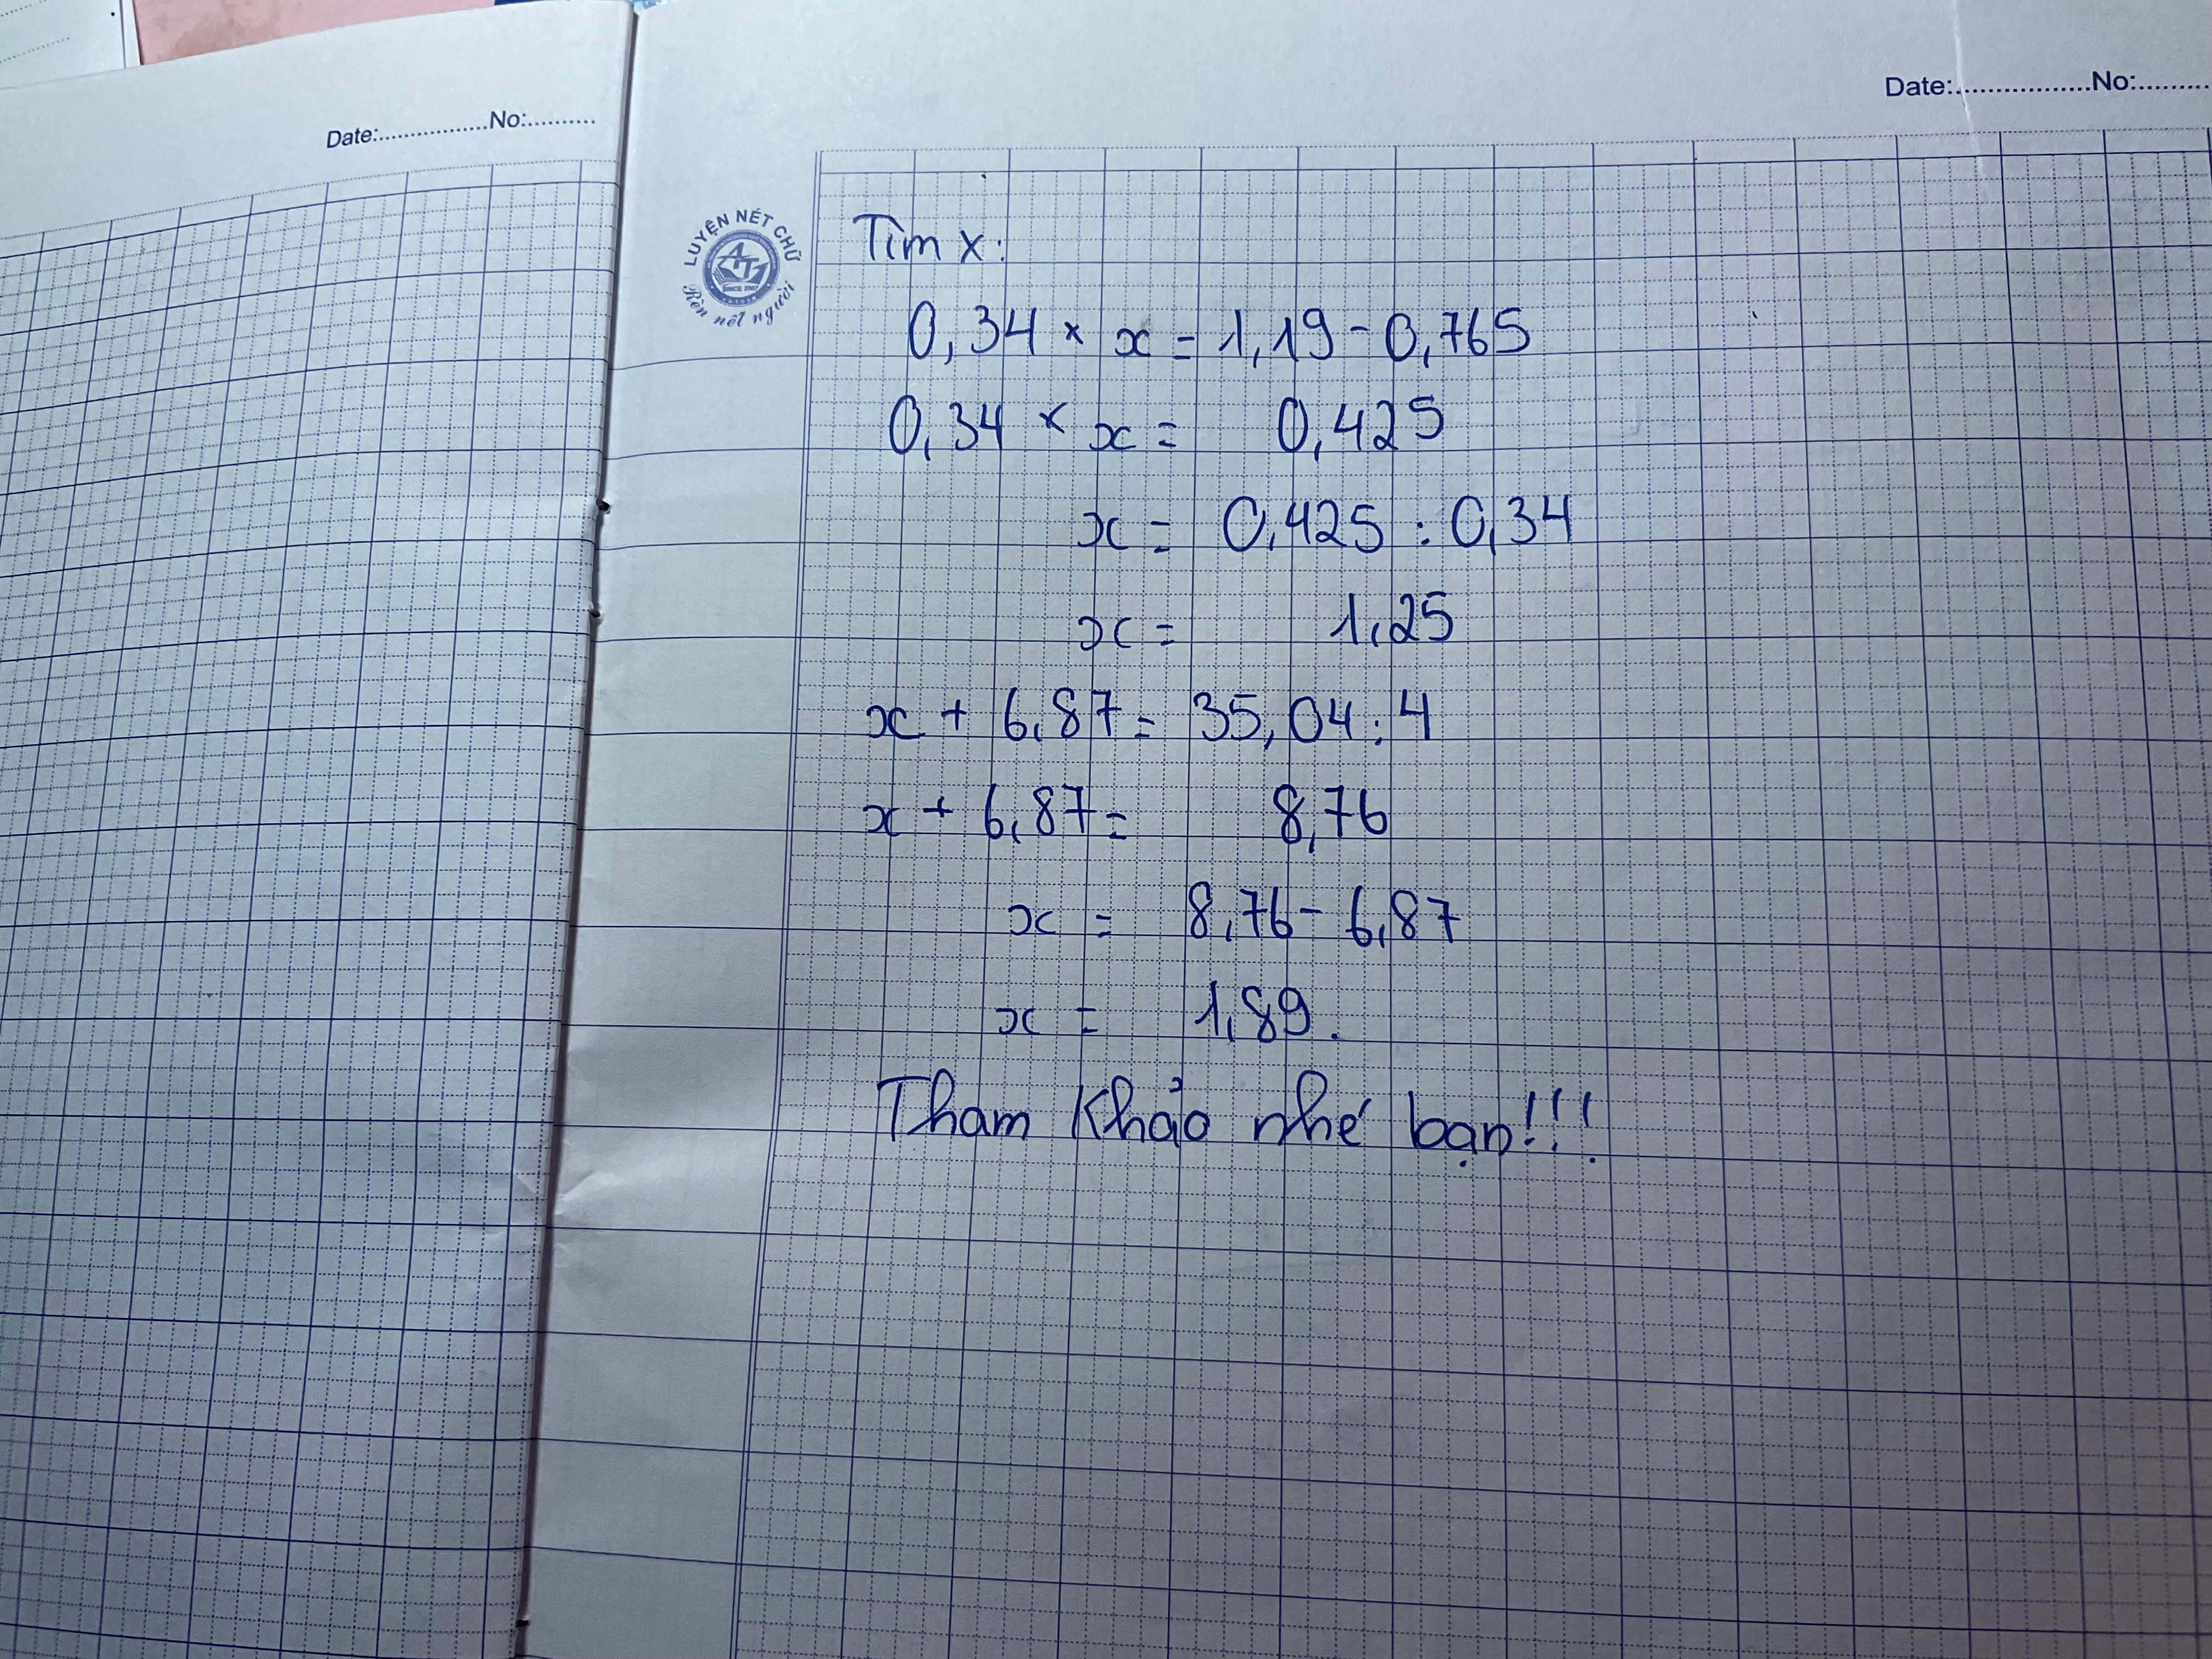 Date:................No:..........
Date:..................No:.........
LUYỆN NÉT CHỮ
ATT
SINCE
Rèn nết người
Tìm x:
0,34 × x = 1,19 - 0,765
0,34 × x = 0,425
x = 0,425 : 0,34
x = 1,25
x + 6,87 = 35,04 : 4
x + 6,87 = 8,76
x = 8,76 - 6,87
x = 1,89.
Tham Khảo nhé bạn!!!